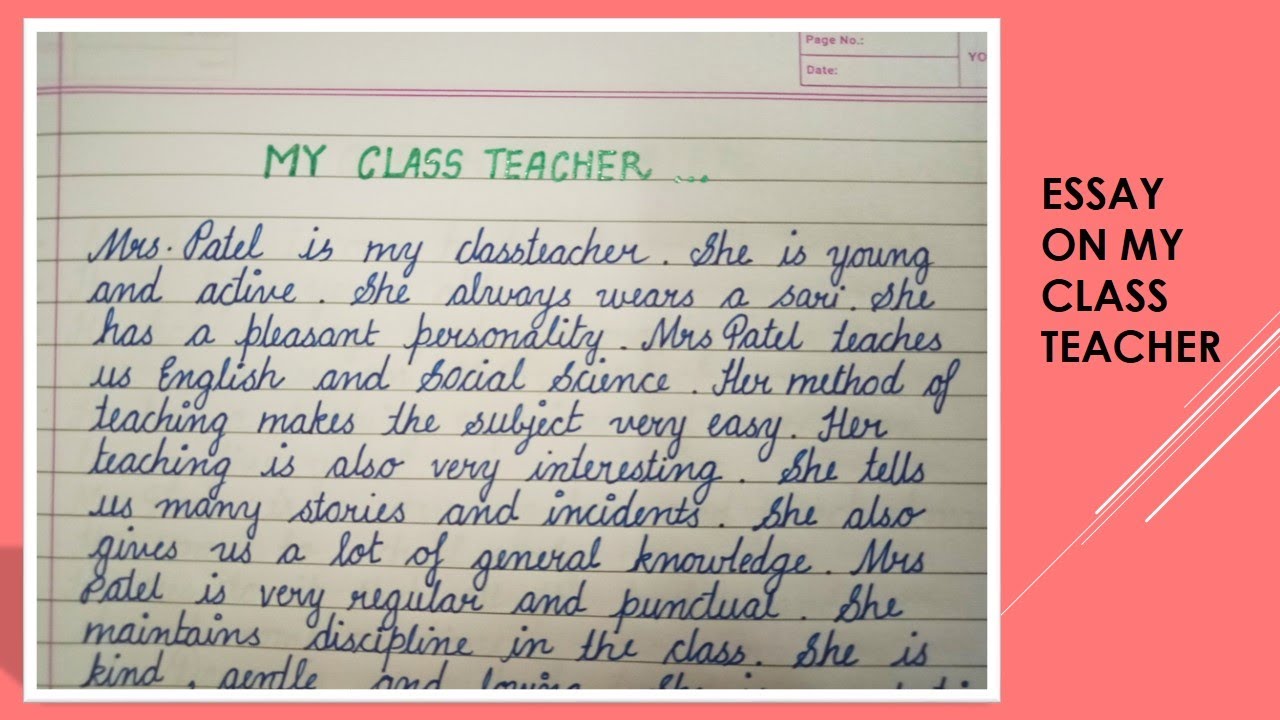 Page No.:
Date:
YO
MY CLASS TEACHER ...
Mrs. Patel is my classteacher. She is young
and active. She always wears a sari. She
has a pleasant personality. Mrs Patel teaches
us English and Social Science. Her method of
teaching makes the subject very easy. Her
teaching is also very interesting. She tells
us many stories and incidents. She also
gives us a lot of general knowledge. Mrs
Patel is very regular and punctual. She
maintains discipline in the class. She is
kind, gentle and loving. She is
ESSAY
ON MY
CLASS
TEACHER